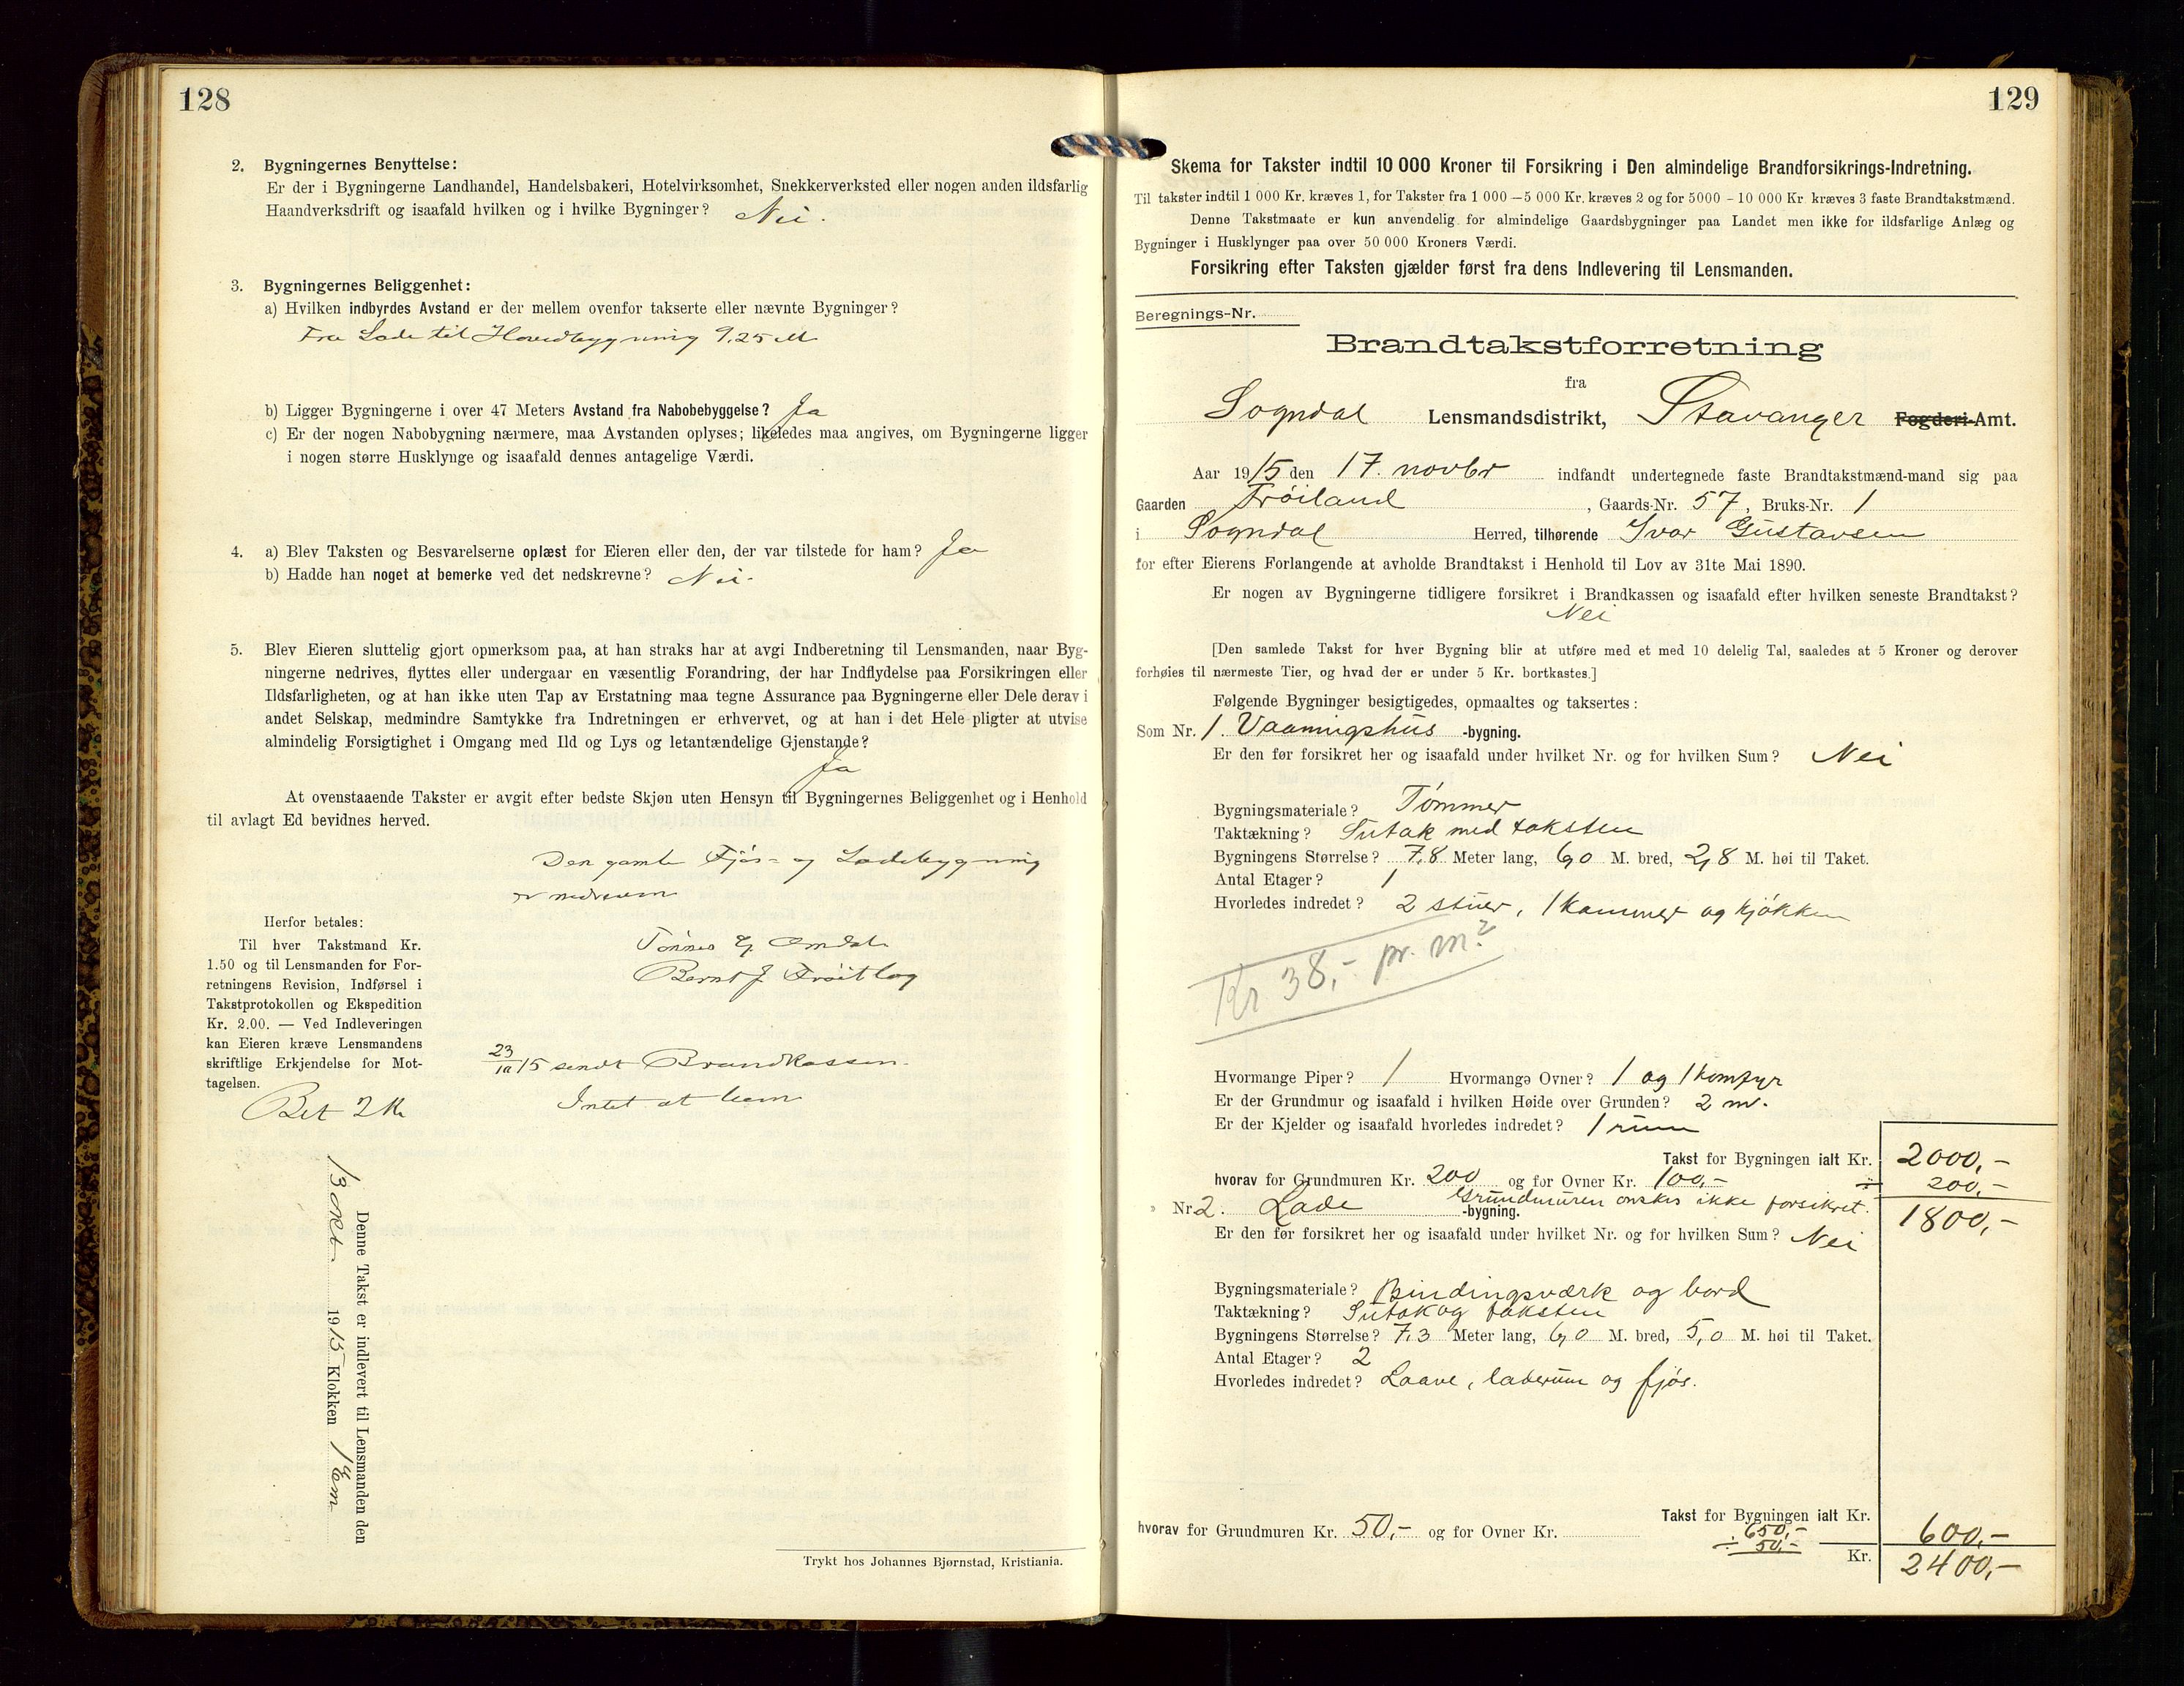 128
2. Bygningernes Benyttelse:
Er der i Bygningerne Landhandel, Handelsbakeri, Hotelvirksomhet, Snekkerverksted eller nogen anden ildsfarlig
Haandverksdrift og isaafald hvilken og i hvilke Bygninger? Nei.
3. Bygningernes Beliggenhet:
a) Hvilken indbyrdes Avstand er der mellem ovenfor takserte eller nævnte Bygninger?
Fra Lade til Hovedbygning 9,25 M
b) Ligger Bygningerne i over 47 Meters Avstand fra Nabobebyggelse? Ja
c) Er der nogen Nabobygning nærmere, maa Avstanden oplyses; likeledes maa angives, om Bygningerne ligger
i nogen større Husklynge og isaafald dennes antagelige Værdi.
4. a) Blev Taksten og Besvarelserne oplæst for Eieren eller den, der var tilstede for ham? Ja
b) Hadde han noget at bemerke ved det nedskrevne? Nei.
5. Blev Eieren sluttelig gjort opmerksom paa, at han straks har at avgi Indberetning til Lensmanden, naar Byg-
ningerne nedrives, flyttes eller undergaar en væsentlig Forandring, der har Indflydelse paa Forsikringen eller
Ildsfarligheten, og at han ikke uten Tap av Erstatning maa tegne Assurance paa Bygningerne eller Dele derav i
andet Selskap, medmindre Samtykke fra Indretningen er erhvervet, og at han i det Hele pligter at utvise
almindelig Forsigtighet i Omgang med Ild og Lys og letantændelige Gjenstande?
Ja
At ovenstaaende Takster er avgit efter bedste Skjøn uten Hensyn til Bygningernes Beliggenhet og i Henhold
til avlagt Ed bevidnes herved.
Den gamle Fjøs- og Ladebygning
er nedreven
Tønnes Omdal
Bernt J.
Herfor betales:
Til hver Takstmand Kr.
1.50 og til Lensmanden for For-
retningens Revision, Indførsel i
Takstprotokollen og Ekspedition
Kr. 2.00. — Ved Indleveringen
kan Eieren kræve Lensmandens
skriftlige Erkjendelse for Mot-
tagelsen.
Bet 2 Kr
23/10 15 sendt Brandkassen.
Intet at bem
Denne Takst er indlevert til Lensmanden den
13 Okt 1915 Klokken 1 Em
Trykt hos Johannes Bjørnstad, Kristiania.
129
Skema for Takster indtil 10 000 Kroner til Forsikring i Den almindelige Brandforsikrings-Indretning.
Til takster indtil 1 000 Kr. kræves 1, for Takster fra 1 000 — 5 000 Kr. kræves 2 og for 5000 - 10 000 Kr kræves 3 faste Brandtakstmænd.
Denne Takstmaate er kun anvendelig for almindelige Gaardsbygninger paa Landet men ikke for ildsfarlige Anlæg og
Bygninger i Husklynger paa over 50 000 Kroners Værdi.
Forsikring efter Taksten gjælder først fra dens Indlevering til Lensmanden.
Beregnings-Nr.
Brandtakstforretning
fra
Sogndal Lensmandsdistrikt, Stavanger Fogderi-Amt.
Aar 1915 den 17. novbr indfandt undertegnede faste Brandtakstmænd-mand sig paa
Gaarden Frøiland, Gaards-Nr. 57, Bruks-Nr. 1
i Sogndal Herred, tilhørende Ivar Gustavsen
for efter Eierens Forlangende at avholde Brandtakst i Henhold til Lov av 31te Mai 1890.
Er nogen av Bygningerne tidligere forsikret i Brandkassen og isaafald efter hvilken seneste Brandtakst?
Nei
[Den samlede Takst for hver Bygning blir at utføre med et med 10 delelig Tal, saaledes at 5 Kroner og derover
forhøies til nærmeste Tier, og hvad der er under 5 Kr. bortkastes.]
Følgende Bygninger besigtigedes, opmaaltes og taksertes:
Som Nr. 1. Vaaningshus -bygning.
Er den før forsikret her og isaafald under hvilket Nr. og for hvilken Sum? Nei
Bygningsmateriale? Tømmer
Taktækning? Sutak med taksten
Bygningens Størrelse? 7,8 Meter lang, 6,0 M. bred, 2,8 M. høi til Taket.
Antal Etager? 1
Hvorledes indredet? 2 stuer, 1 kammer og kjøkken
Kr 38,- pr. m²
Hvormange Piper? 1 Hvormange Ovner? 1 og 1 komfyr
Er der Grundmur og isaafald i hvilken Høide over Grunden? 2 m.
Er der Kjelder og isaafald hvorledes indredet? 1 rum
Takst for Bygningen ialt Kr. 2000,-
hvorav for Grundmuren Kr. 200 og for Ovner Kr. 100,- ÷ 200,-
Grundmuren ønskes ikke forsikret. 1800,-
Nr 2. Lade -bygning.
Er den før forsikret her og isaafald under hvilket Nr. og for hvilken Sum? Nei
Bygningsmateriale? Bindingsværk og bord
Taktækning? Sutak og taksten
Bygningens Størrelse? 7,3 Meter lang, 6,0 M. bred, 5,0 M. høi til Taket.
Antal Etager? 2
Hvorledes indredet? Laave, laderum og fjøs.
Takst for Bygningen ialt Kr.
hvorav for Grundmuren Kr. 50,- og for Ovner Kr. 650,-
÷ 50,- 600,-
Kr. 2400,-